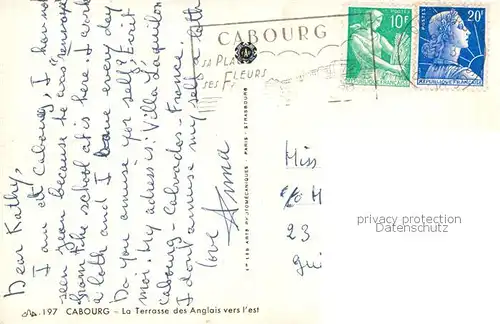 Dear Kathy,
I am at Cabourg, I have not
seen Jean because he was "renvoyé"
from the school at is here. I work
a loth and I bave every day
Do you amuse you self? Ecrit
moi. My adress is: Villa L'aquilon
Cabourg - Calvados - France.
I dont amuse my self a loth
love Anna
CABOURG
SA PLA
FLEURS
SES
POSTES
10F
REPUBLIQUE FRANÇAISE
POSTES
20F
REPUBLIQUE FRANÇAISE
LES ARTS PHOTOMÉCANIQUES - PARIS - STRASBOURG
Miss
c/o H
23
privacy protection
197 CABOURG – La Terrasse des Anglais vers l'est